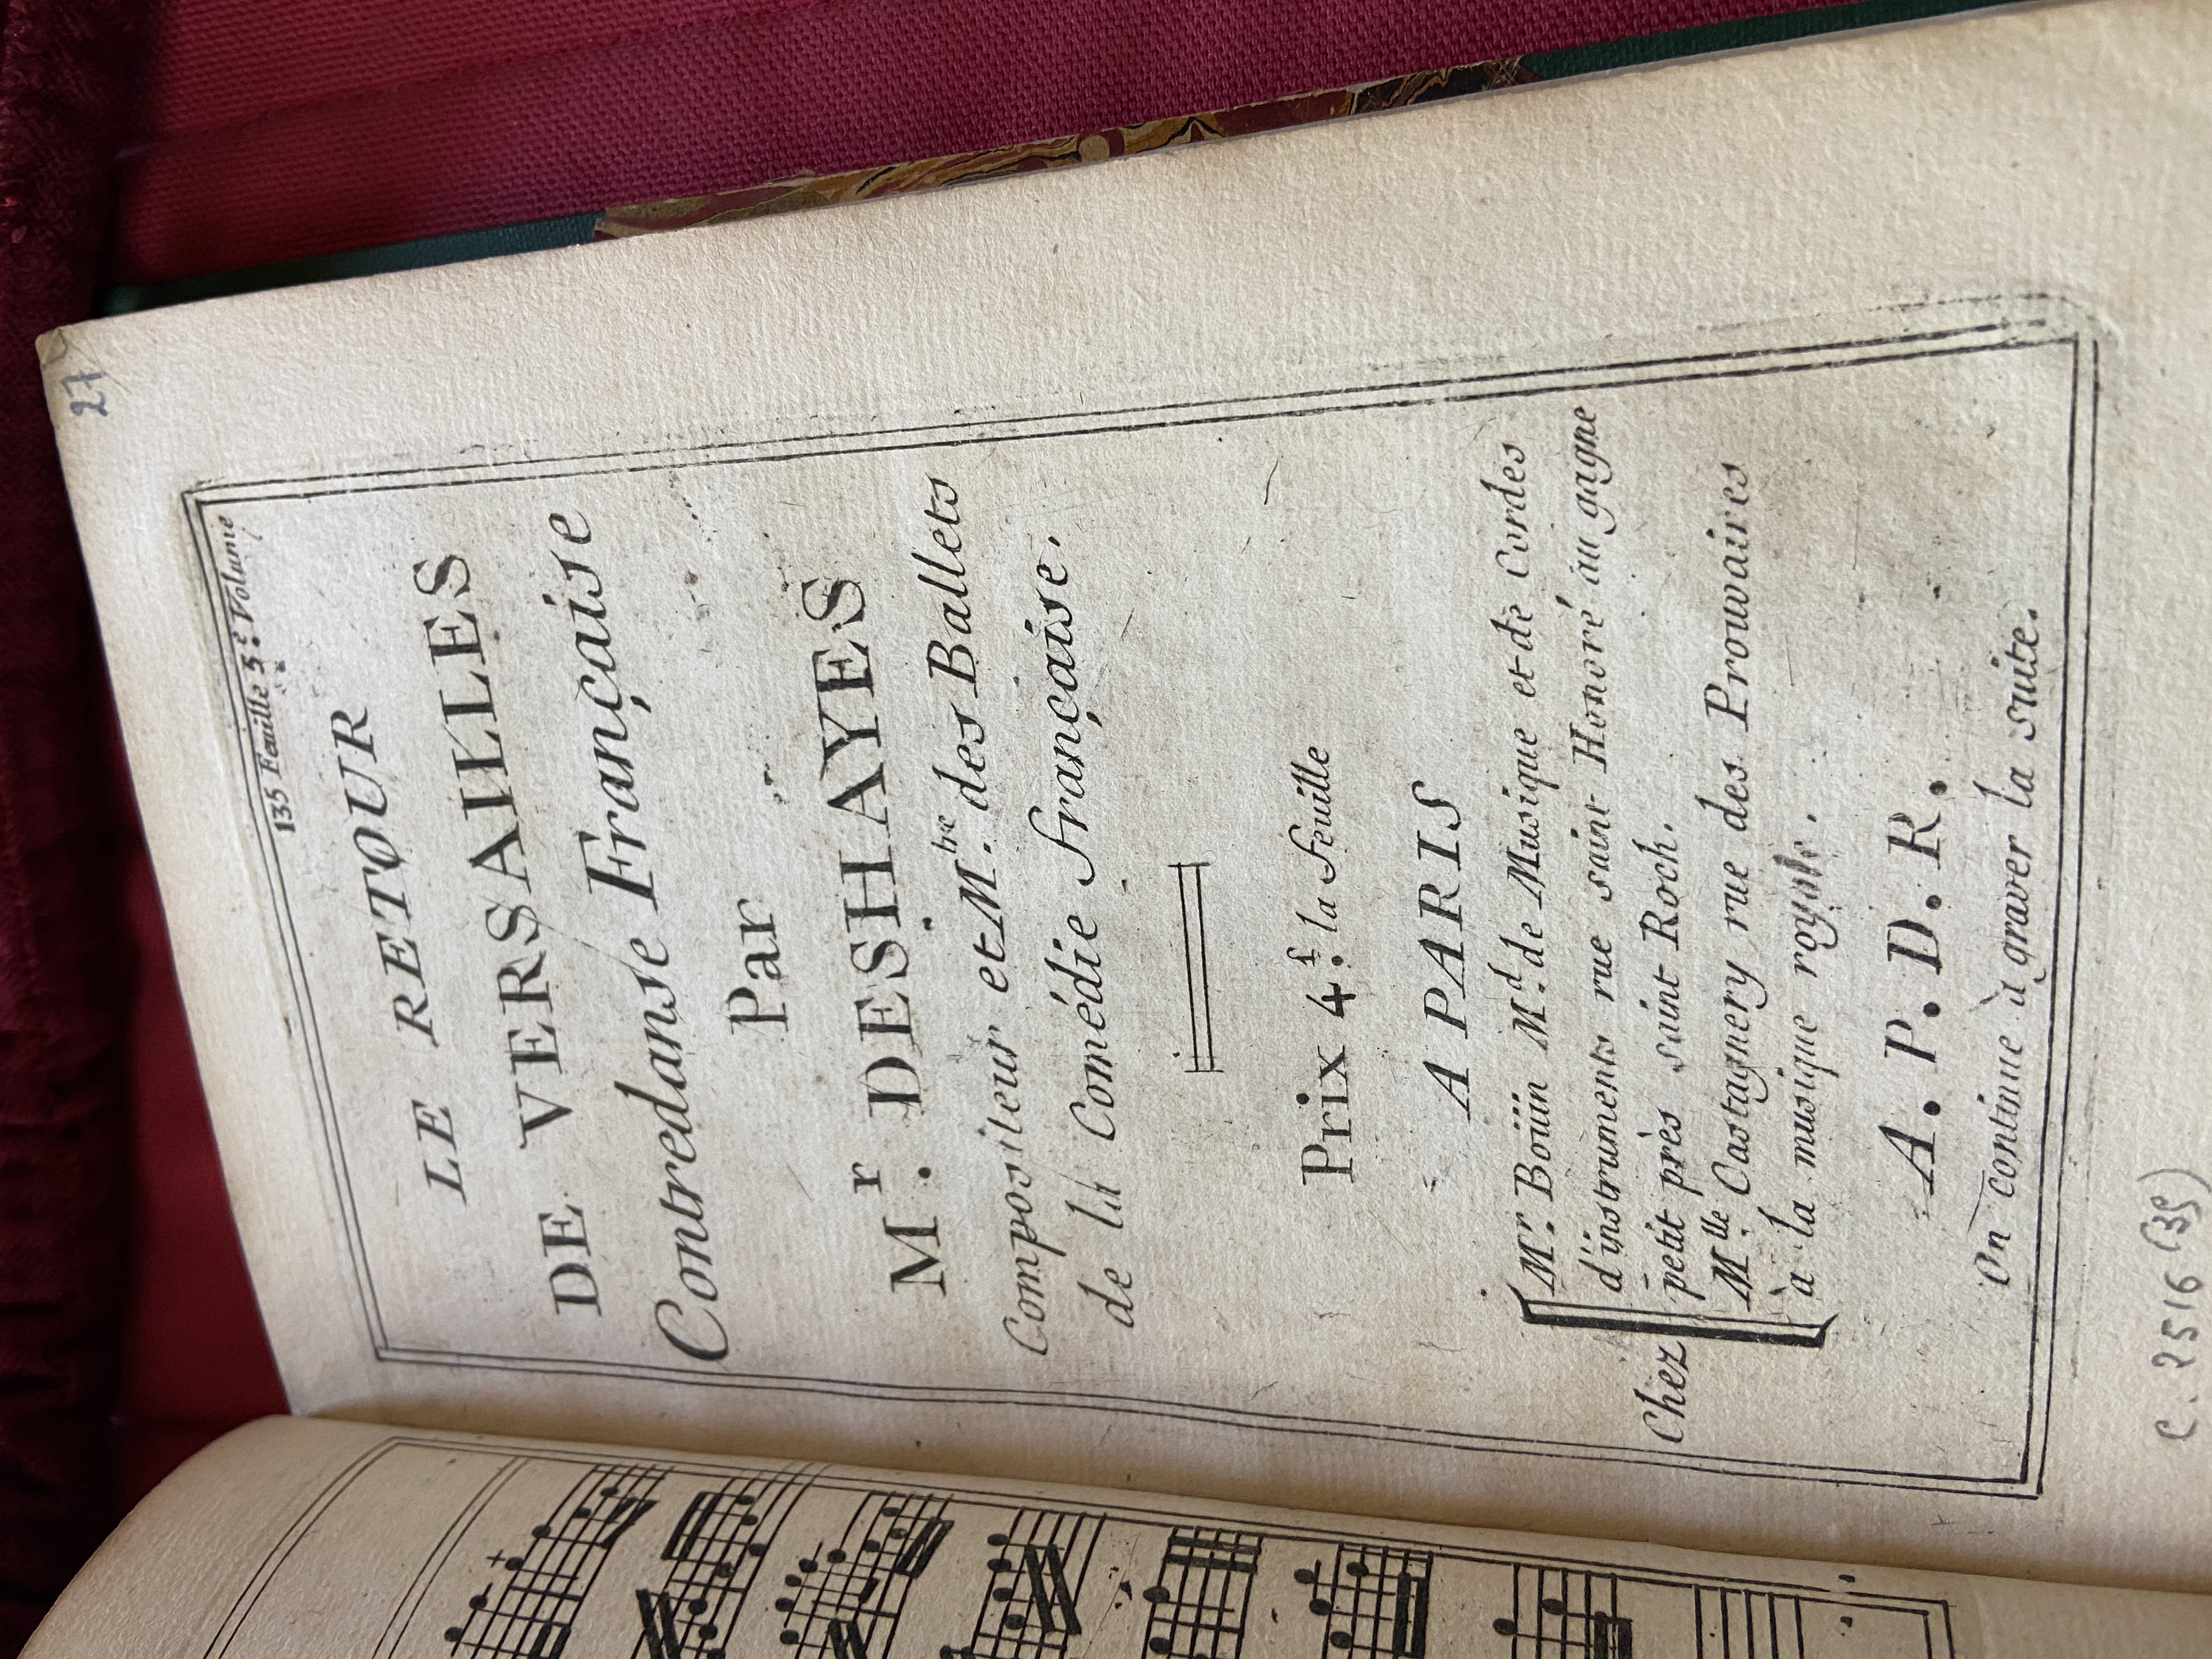 27
135 Feuille 5.e Volume
LE RETOUR
DE VERSAILLES
Contredanse Française
Par
M.r DESHAYES
Compositeur et M.bre des Ballets
de la Comédie française.
Prix 4.s la feuille
A PARIS
Chez
Mr. Boüin M.d de Musique et de Cordes
d'instruments rue saint Honoré au gagne
petit près saint Roch.
Mlle. Castagnery rue des Prouvaires
à la musique royale.
A. P. D. R.
On continue à graver la suite.
C. 2516 (39)